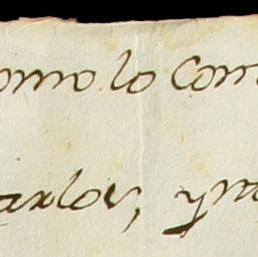 omo lo com
arlos, y m